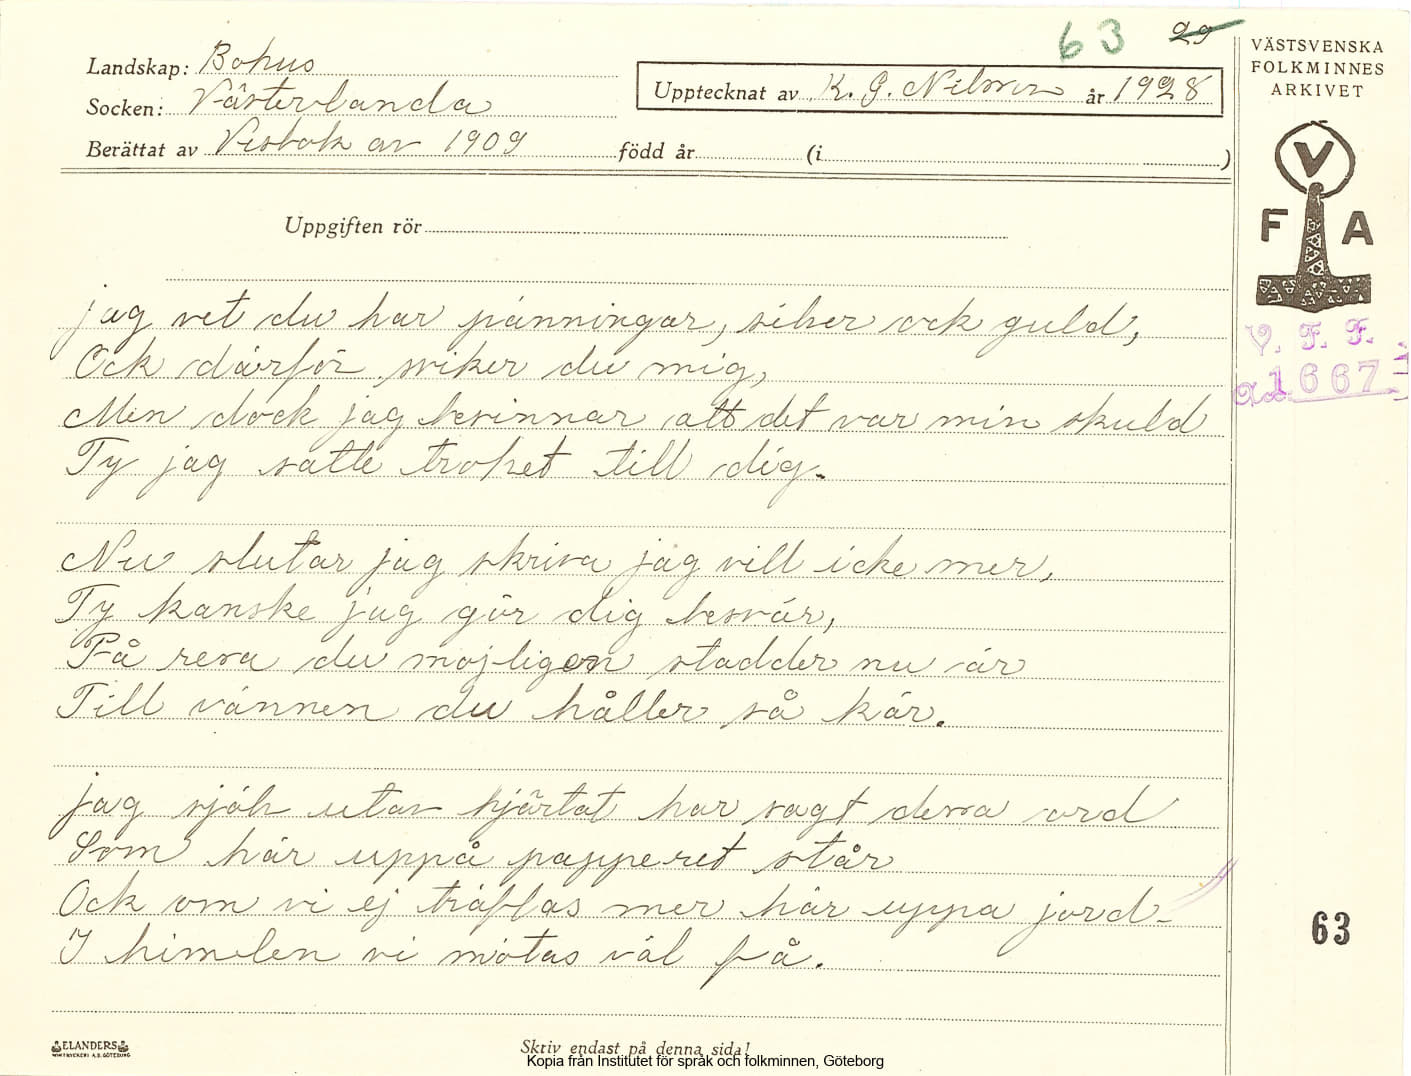 63 29
VÄSTSVENSKA
FOLKMINNES
ARKIVET
Landskap: Bohus
Socken: Västerlanda
Upptecknat av K. G. Nilsson år 1928
Berättat av Visbok av 1909 född år (i )
V
F A
Uppgiften rör
V. F. F.
1667
jag vet du har pänningar, silver ock guld,
Ock därför sviker du mig,
Men dock jag besinnar att det var min skuld
Ty jag satte trohet till dig.
Nu slutar jag skriva jag vill icke mer,
Ty kanske jag gör dig besvär,
På resa du möjligen stadder nu är
Till vännen du håller så kär.
jag själv utav hjärtat har sagt dessa ord
Som här uppå papperet står
Ock om vi ej träffas mer här uppa jord
I himelen vi mötas väl få.
63
ELANDERS
Skriv endast på denna sida!
Kopia från Institutet för språk och folkminnen, Göteborg